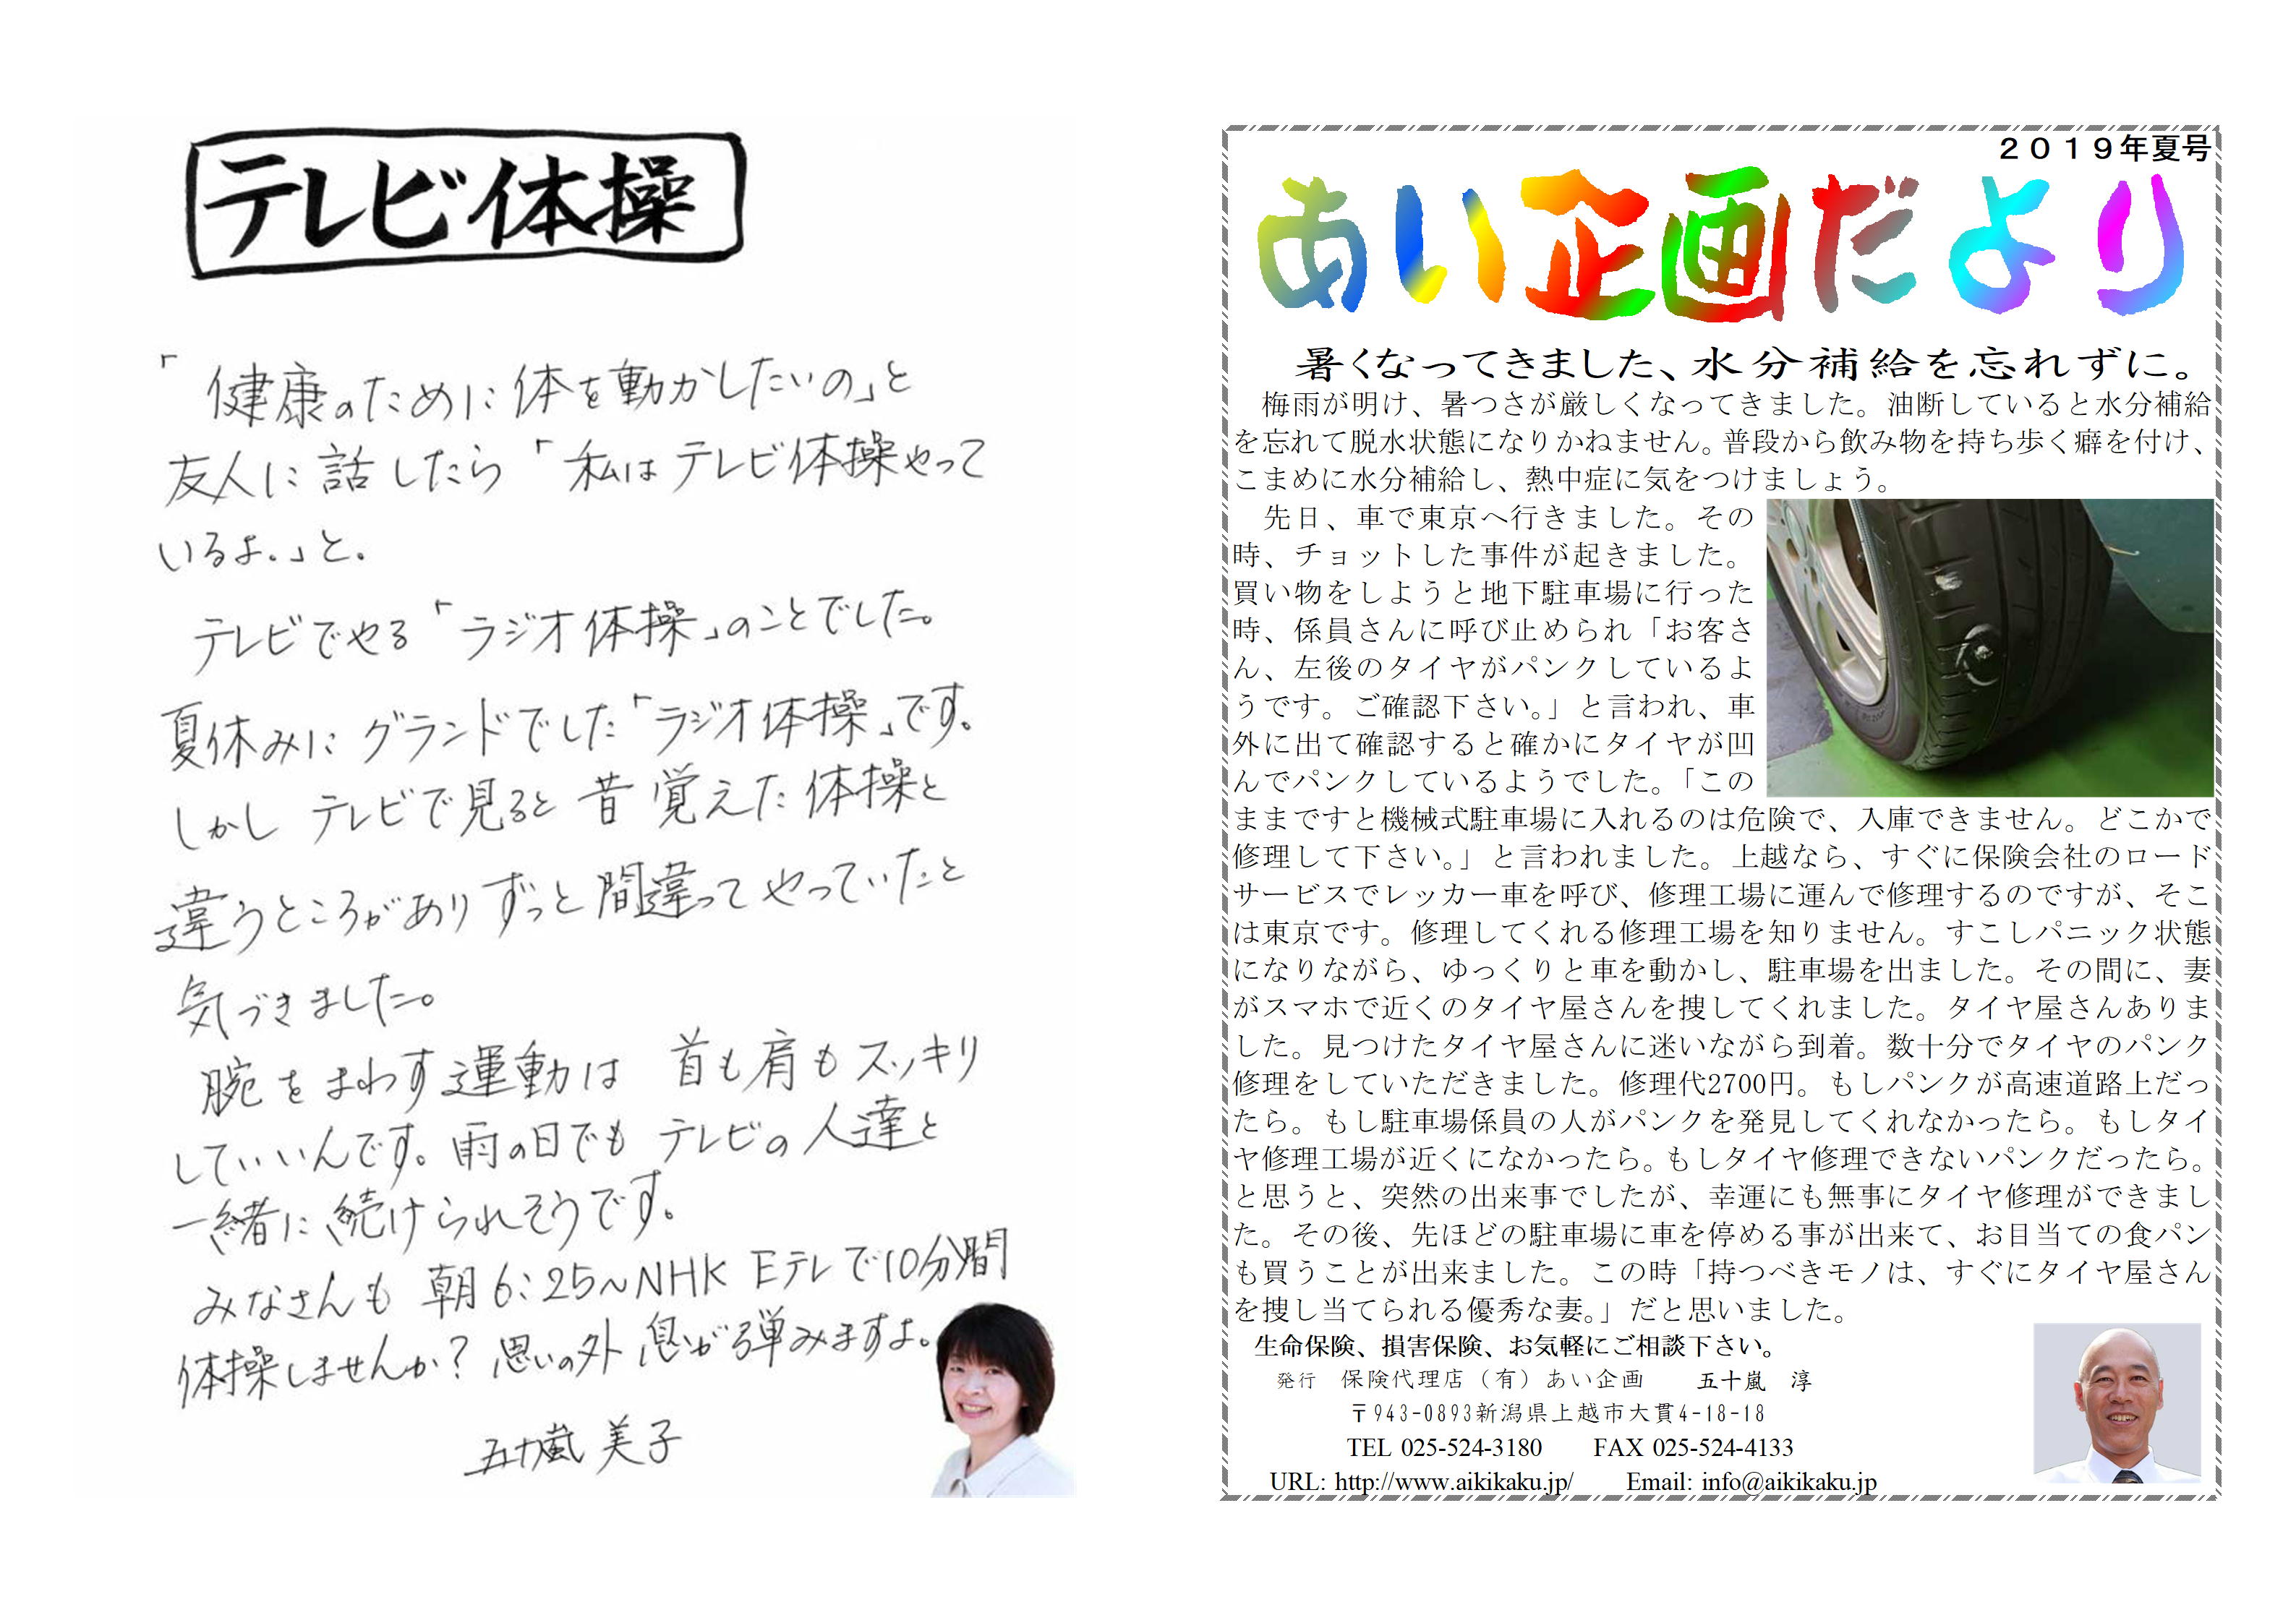 テレビ体操
「健康のために体を動かしたいの」と
友人に話したら「私はテレビ体操やって
いるよ.」と。
テレビでやる「ラジオ体操」のことでした。
夏休みにグランドでした「ラジオ体操」です。
しかしテレビで見ると昔覚えた体操と
違うところがありずっと間違ってやっていたと
気づきました。
腕をまわす運動は 首も肩もスッキリ
していいんです。雨の日でもテレビの人達と
一緒に続けられそうです。
みなさんも朝6:25~NHK Eテレで10分間
体操しませんか?思いの外息が弾みますよ。
五十嵐 美子
2019年夏号
あい企画だより
暑くなってきました、水分補給を忘れずに。
梅雨が明け、暑つさが厳しくなってきました。油断していると水分補給
を忘れて脱水状態になりかねません。普段から飲み物を持ち歩く癖を付け、
こまめに水分補給し、熱中症に気をつけましょう。
先日、車で東京へ行きました。その
時、チョットした事件が起きました。
買い物をしようと地下駐車場に行った
時、係員さんに呼び止められ「お客さ
ん、左後のタイヤがパンクしているよ
うです。ご確認下さい。」と言われ、車
外に出て確認すると確かにタイヤが凹
んでパンクしているようでした。「この
ままですと機械式駐車場に入れるのは危険で、入庫できません。どこかで
修理して下さい。」と言われました。上越なら、すぐに保険会社のロード
サービスでレッカー車を呼び、修理工場に運んで修理するのですが、そこ
は東京です。修理してくれる修理工場を知りません。すこしパニック状態
になりながら、ゆっくりと車を動かし、駐車場を出ました。その間に、妻
がスマホで近くのタイヤ屋さんを捜してくれました。タイヤ屋さんありま
した。見つけたタイヤ屋さんに迷いながら到着。数十分でタイヤのパンク
修理をしていただきました。修理代2700円。もしパンクが高速道路上だっ
たら。もし駐車場係員の人がパンクを発見してくれなかったら。もしタイ
ヤ修理工場が近くになかったら。もしタイヤ修理できないパンクだったら。
と思うと、突然の出来事でしたが、幸運にも無事にタイヤ修理ができまし
た。その後、先ほどの駐車場に車を停める事が出来て、お目当ての食パン
も買うことが出来ました。この時「持つべきモノは、すぐにタイヤ屋さん
を捜し当てられる優秀な妻。」だと思いました。
生命保険、損害保険、お気軽にご相談下さい。
発行 保険代理店（有）あい企画 五十嵐 淳
〒943-0893新潟県上越市大貫4-18-18
TEL 025-524-3180 FAX 025-524-4133
URL: http://www.aikikaku.jp/ Email: info@aikikaku.jp